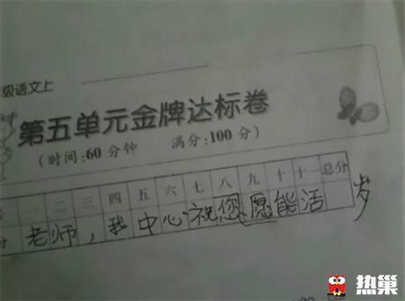 级语文上
第五单元金牌达标卷
(时间:60分钟 满分:100分)
一 二 三 四 五 六 七 八 九 十 十一 总分
分 老师,我中心祝您愿能活 岁
热巢